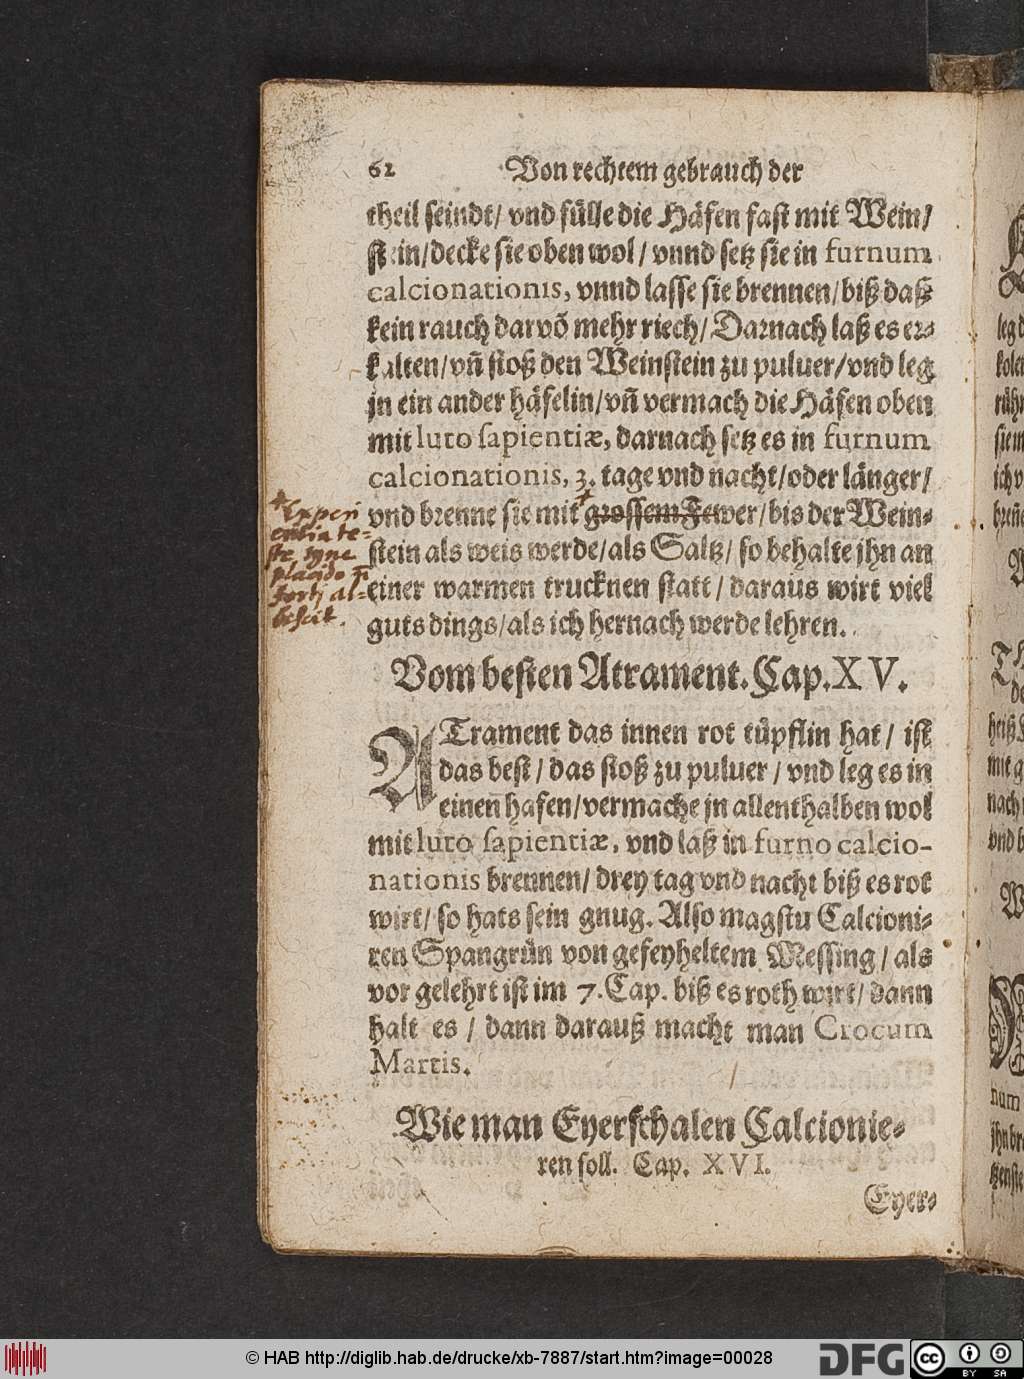 62 Von rechtem gebrauch der
theil seindt/ vnd fülle die Häfen fast mit Wein/
stein/decke sie oben wol/ vnnd setz sie in furnum
calcionationis, vnnd lasse sie brennen/biß daß
kein rauch darvõ mehr riech/ Darnach laß es er-
kalten/vñ stoß den Weinstein zu puluer/vnd leg
jn ein ander häfelin/vñ vermach die Häfen oben
mit luto sapientiæ, darnach setz es in furnum
calcionationis, 3. tage vnd nacht/oder länger/
vnd brenne sie mit grossem Fewer/bis der Wein-
stein als weis werde/als Saltz/ so behalte jhn an
einer warmen trucknen statt/ daraus wirt viel
guts dings/als ich hernach werde lehren.
*Experi
entia te-
ste, igne
placido
forti al-
bescit.
Vom besten Atrament. Cap. XV.
ATrament das innen rot tüpflin hat/ ist
das best/ das stoß zu puluer/ vnd leg es in
einen hafen/vermache jn allenthalben wol
mit luto sapientiæ, vnd laß in furno calcio-
nationis brennen/ drey tag vnd nacht biß es rot
wirt/ so hats sein gnug. Also magstu Calcioni-
ren Spangrün von gefeyheltem Messing/ als
vor gelehrt ist im 7. Cap. biß es roth wirt/ dann
halt es/ dann darauß macht man Crocum
Martis.
Wie man Eyerschalen Calcionie-
ren soll. Cap. XVI.
Eyer-
leg d
rühr
ich v
heiß
mit g
nach
vnd b
num
© HAB http://diglib.hab.de/drucke/xb-7887/start.htm?image=00028
DFG
cc
BY SA